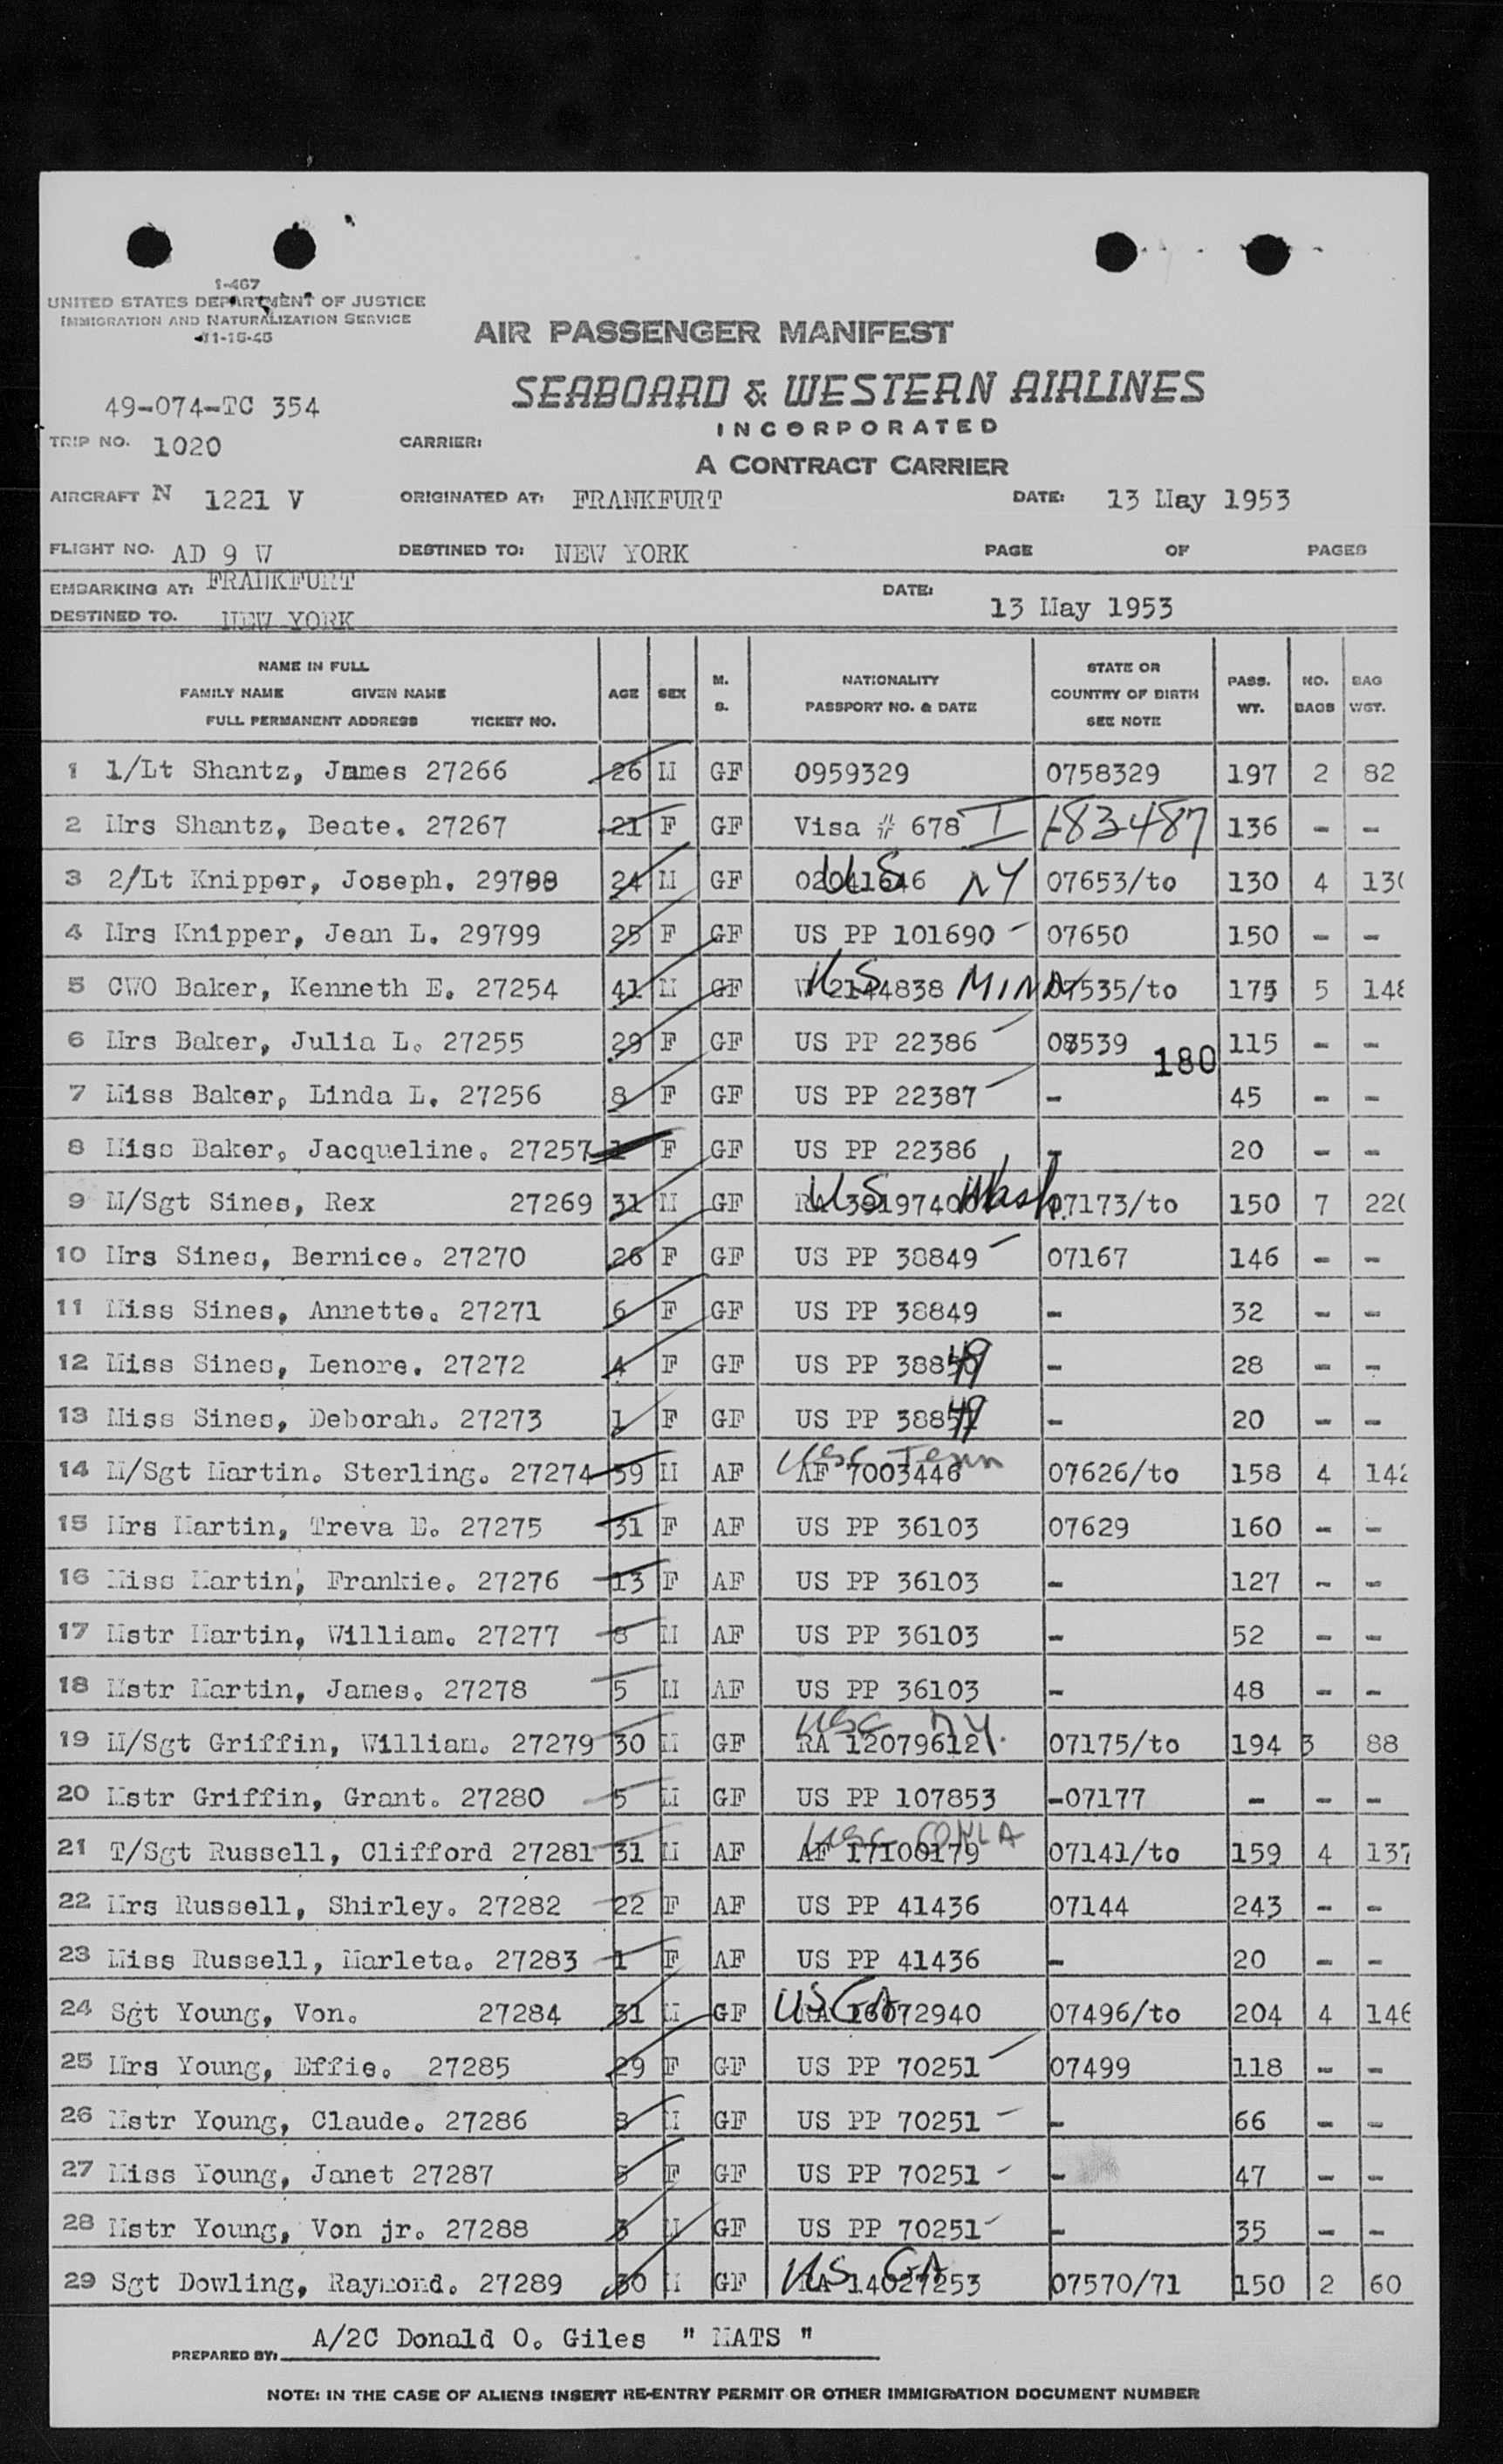 1-467
UNITED STATES DEPARTMENT OF JUSTICE
IMMIGRATION AND NATURALIZATION SERVICE
11-15-45
AIR PASSENGER MANIFEST
SEABOARD & WESTERN AIRLINES
INCORPORATED
A CONTRACT CARRIER
49-074-TC 354
TRIP NO. 1020 CARRIER:
AIRCRAFT N 1221 V ORIGINATED AT: FRANKFURT DATE: 13 May 1953
FLIGHT NO. AD 9 W DESTINED TO: NEW YORK PAGE OF PAGES
EMBARKING AT: FRANKFURT DATE: 13 May 1953
DESTINED TO. NEW YORK
NAME IN FULL FAMILY NAME GIVEN NAME FULL PERMANENT ADDRESS TICKET NO. AGE SEX M. S. NATIONALITY PASSPORT NO. & DATE STATE OR COUNTRY OF BIRTH SEE NOTE PASS. WT. NO. BAGS BAG WGT.
1 1/Lt Shantz, James 27266 26 M GF 0959329 0758329 197 2 82
2 Mrs Shantz, Beate. 27267 21 F GF Visa # 678 I-183487 136 - -
3 2/Lt Knipper, Joseph. 29788 24 M GF 02041646 US NY 07653/to 130 4 130
4 Mrs Knipper, Jean L. 29799 25 F GF US PP 101690 07650 150 - -
5 CWO Baker, Kenneth E. 27254 41 M GF W 2144838 US MINN 07535/to 175 5 148
6 Mrs Baker, Julia L. 27255 29 F GF US PP 22386 07539 180 115 - -
7 Miss Baker, Linda L. 27256 8 F GF US PP 22387 - 45 - -
8 Miss Baker, Jacqueline. 27257 1 F GF US PP 22386 - 20 - -
9 M/Sgt Sines, Rex 27269 31 M GF RA 39197400 US Wash. 07173/to 150 7 220
10 Mrs Sines, Bernice. 27270 26 F GF US PP 38849 07167 146 - -
11 Miss Sines, Annette. 27271 6 F GF US PP 38849 - 32 - -
12 Miss Sines, Lenore. 27272 4 F GF US PP 38849 - 28 - -
13 Miss Sines, Deborah. 27273 1 F GF US PP 38849 - 20 - -
14 M/Sgt Martin. Sterling. 27274 39 M AF AF 7003446 USC Tenn 07626/to 158 4 142
15 Mrs Martin, Treva E. 27275 31 F AF US PP 36103 07629 160 - -
16 Miss Martin, Frankie. 27276 13 F AF US PP 36103 - 127 - -
17 Mstr Martin, William. 27277 8 M AF US PP 36103 - 52 - -
18 Mstr Martin, James. 27278 5 M AF US PP 36103 - 48 - -
19 M/Sgt Griffin, William. 27279 30 M GF RA 12079612 USC NY. 07175/to 194 3 88
20 Mstr Griffin, Grant. 27280 5 M GF US PP 107853 -07177 - - -
21 T/Sgt Russell, Clifford 27281 31 M AF AF 17100179 USC 07141/to 159 4 137
22 Mrs Russell, Shirley. 27282 22 F AF US PP 41436 07144 243 - -
23 Miss Russell, Marleta. 27283 1 F AF US PP 41436 - 20 - -
24 Sgt Young, Von. 27284 31 M GF RA 16072940 US GA 07496/to 204 4 146
25 Mrs Young, Effie. 27285 29 F GF US PP 70251 07499 118 - -
26 Mstr Young, Claude. 27286 8 M GF US PP 70251 - 66 - -
27 Miss Young, Janet 27287 5 F GF US PP 70251 - 47 - -
28 Mstr Young, Von jr. 27288 3 M GF US PP 70251 - 35 - -
29 Sgt Dowling, Raymond. 27289 30 M GF RA 14027253 US GA 07570/71 150 2 60
PREPARED BY: A/2C Donald O. Giles " MATS "
NOTE: IN THE CASE OF ALIENS INSERT RE-ENTRY PERMIT OR OTHER IMMIGRATION DOCUMENT NUMBER